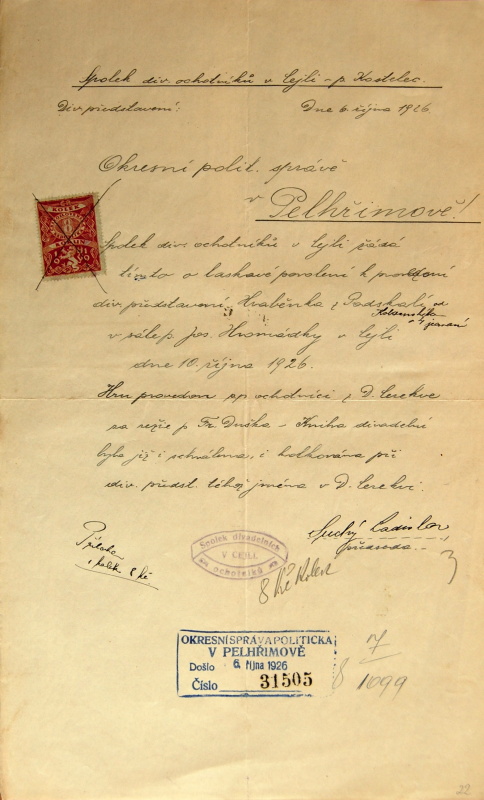 Spolek div. ochotníků v Cejli - p. Kostelec.
Div. představení: Dne 6. října 1926
Okresní polit. správě
v Pelhřimově!
KOLEK
Spolek div. ochotníků v Cejli žádá
tímto o laskavé povolení k provedení
div. představení Hraběnka z Podskalí od
v sále p. Jos. Hromádky v Cejli
dne 10. října 1926.
Hru provedou sp. ochotníci z D. Cerekve
za režie p. Fr. Duška - Kniha divadelní
byla již i schválena, i kolkována při
div. předst. téhož jména v D. Cerekvi.
Suchý Ladislav
předseda
Příloha
1 kolek 8 Kč
Spolek divadelních
V CEJLI.
ochotníků
8 Kč Kolek
OKRESNÍ SPRÁVA POLITICKÁ
V PELHŘIMOVĚ
Došlo 6. října 1926
Číslo 31505
7
8 1099
22